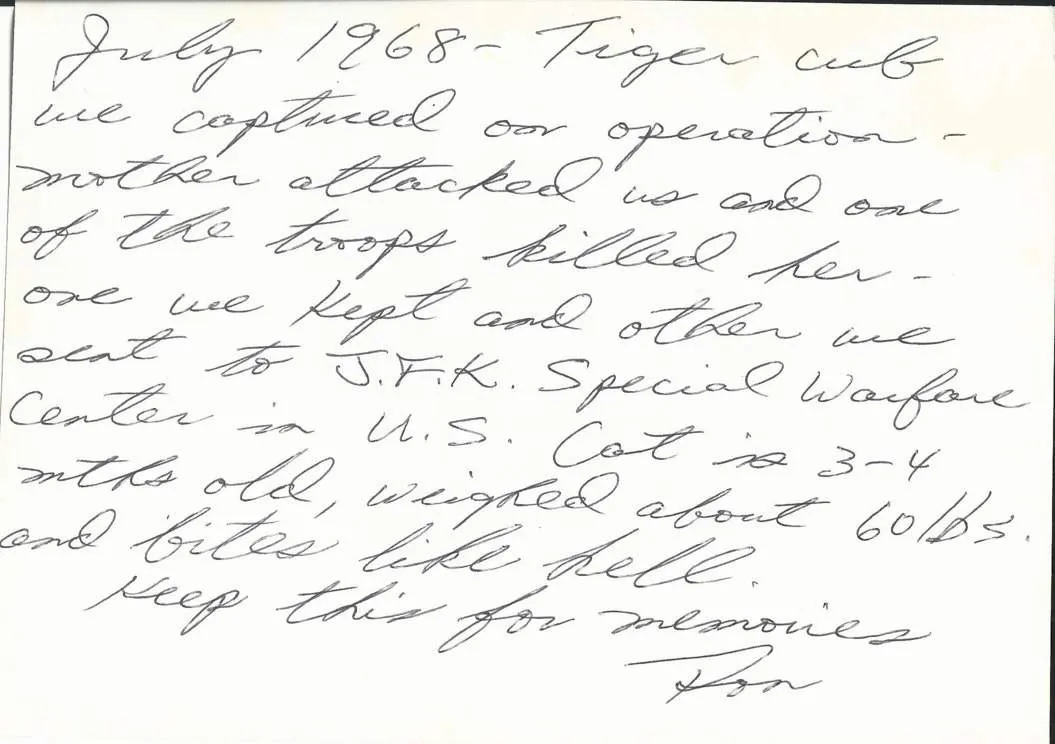 July 1968 - Tiger cub
we captured on operation -
mother attacked us and one
of the troops killed her -
one we kept and other we
sent to J.F.K. Special Warfare
Center in U.S. Cat is 3-4
mths old, weighed about 60 lbs.
and bites like hell.
Keep this for memories
Ron